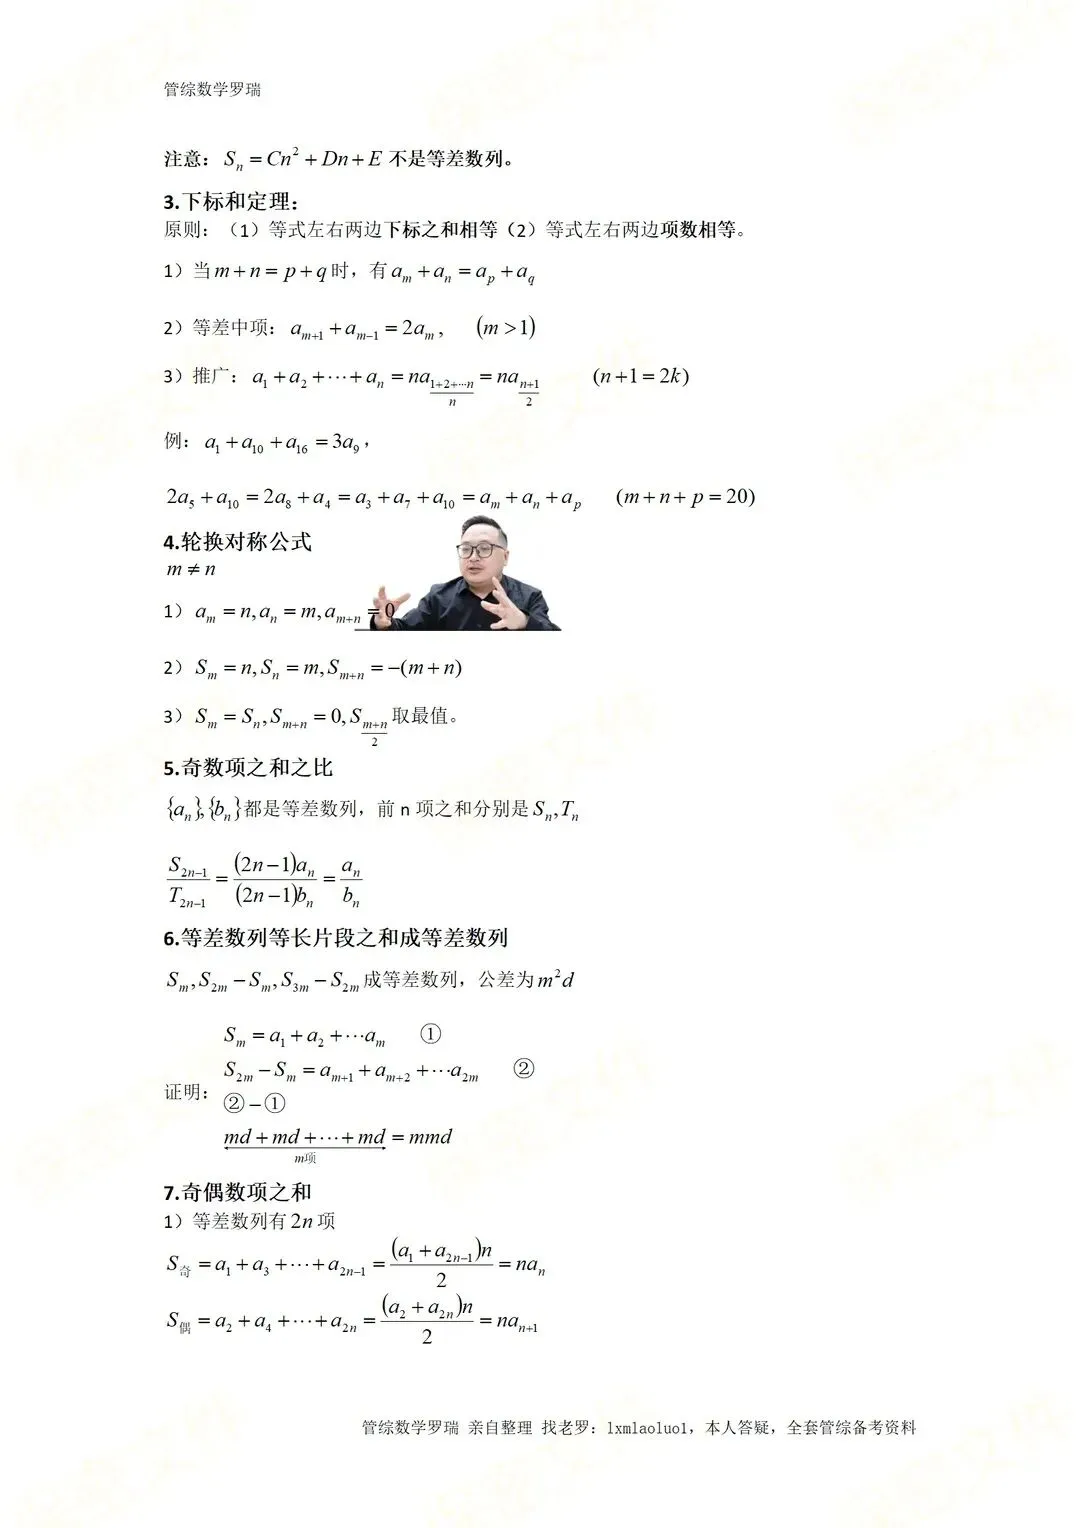 管综数学罗瑞
注意：Sₙ = Cn² + Dn + E 不是等差数列。
3.下标和定理：
原则：（1）等式左右两边下标之和相等（2）等式左右两边项数相等。
1）当 m + n = p + q 时，有 a_m + a_n = a_p + a_q
2）等差中项：a_{m+1} + a_{m−1} = 2a_m , (m > 1)
3）推广：a_1 + a_2 + ⋯ + a_n = na_{(1+2+⋯n)/n} = na_{(n+1)/2} (n + 1 = 2k)
例：a_1 + a_10 + a_16 = 3a_9，
2a_5 + a_10 = 2a_8 + a_4 = a_3 + a_7 + a_10 = a_m + a_n + a_p (m + n + p = 20)
4.轮换对称公式
m ≠ n
1）a_m = n, a_n = m, a_{m+n} = 0
2）S_m = n, S_n = m, S_{m+n} = −(m + n)
3）S_m = S_n, S_{m+n} = 0, S_{(m+n)/2} 取最值。
5.奇数项之和之比
{a_n},{b_n}都是等差数列，前 n 项之和分别是 S_n, T_n
S_{2n−1}/T_{2n−1} = (2n−1)a_n/(2n−1)b_n = a_n/b_n
6.等差数列等长片段之和成等差数列
S_m, S_{2m} − S_m, S_{3m} − S_{2m} 成等差数列，公差为 m²d
S_m = a_1 + a_2 + ⋯a_m ①
S_{2m} − S_m = a_{m+1} + a_{m+2} + ⋯a_{2m} ②
证明：
② − ①
md + md + ⋯ + md = mmd
m项
7.奇偶数项之和
1）等差数列有 2n 项
S_奇 = a_1 + a_3 + ⋯ + a_{2n−1} = (a_1 + a_{2n−1})n/2 = na_n
S_偶 = a_2 + a_4 + ⋯ + a_{2n} = (a_2 + a_{2n})n/2 = na_{n+1}
管综数学罗瑞 亲自整理 找老罗：lxmlaoluo1，本人答疑，全套管综备考资料